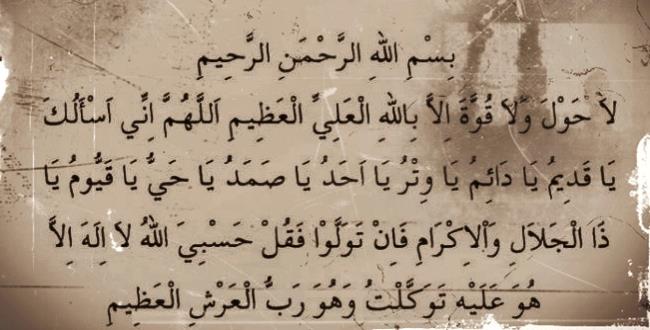 بِسْمِ اللهِ الرَّحْمَنِ الرَّحِيمِ
لاَ حَوْلَ وَلاَ قُوَّةَ اِلاَّ بِاللهِ الْعَلِيِّ الْعَظِيمِ اَللَّهُمَّ اِنِّي اَسْأَلُكَ
يَا قَدِيمُ يَا دَائِمُ يَا وِتْرُ يَا اَحَدُ يَا صَمَدُ يَا حَيُّ يَا قَيُّومُ يَا
ذَا الْجَلاَلِ وَاْلاِكْرَامِ فَاِنْ تَوَلَّوْا فَقُلْ حَسْبِيَ اللهُ لاَ اِلَهَ اِلاَّ
هُوَ عَلَيْهِ تَوَكَّلْتُ وَهُوَ رَبُّ الْعَرْشِ الْعَظِيمِ